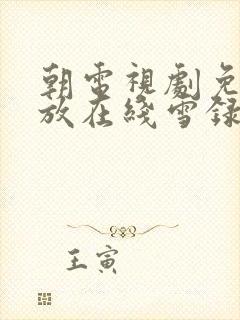 朝雪視劇免
放在綫雪録
王寅